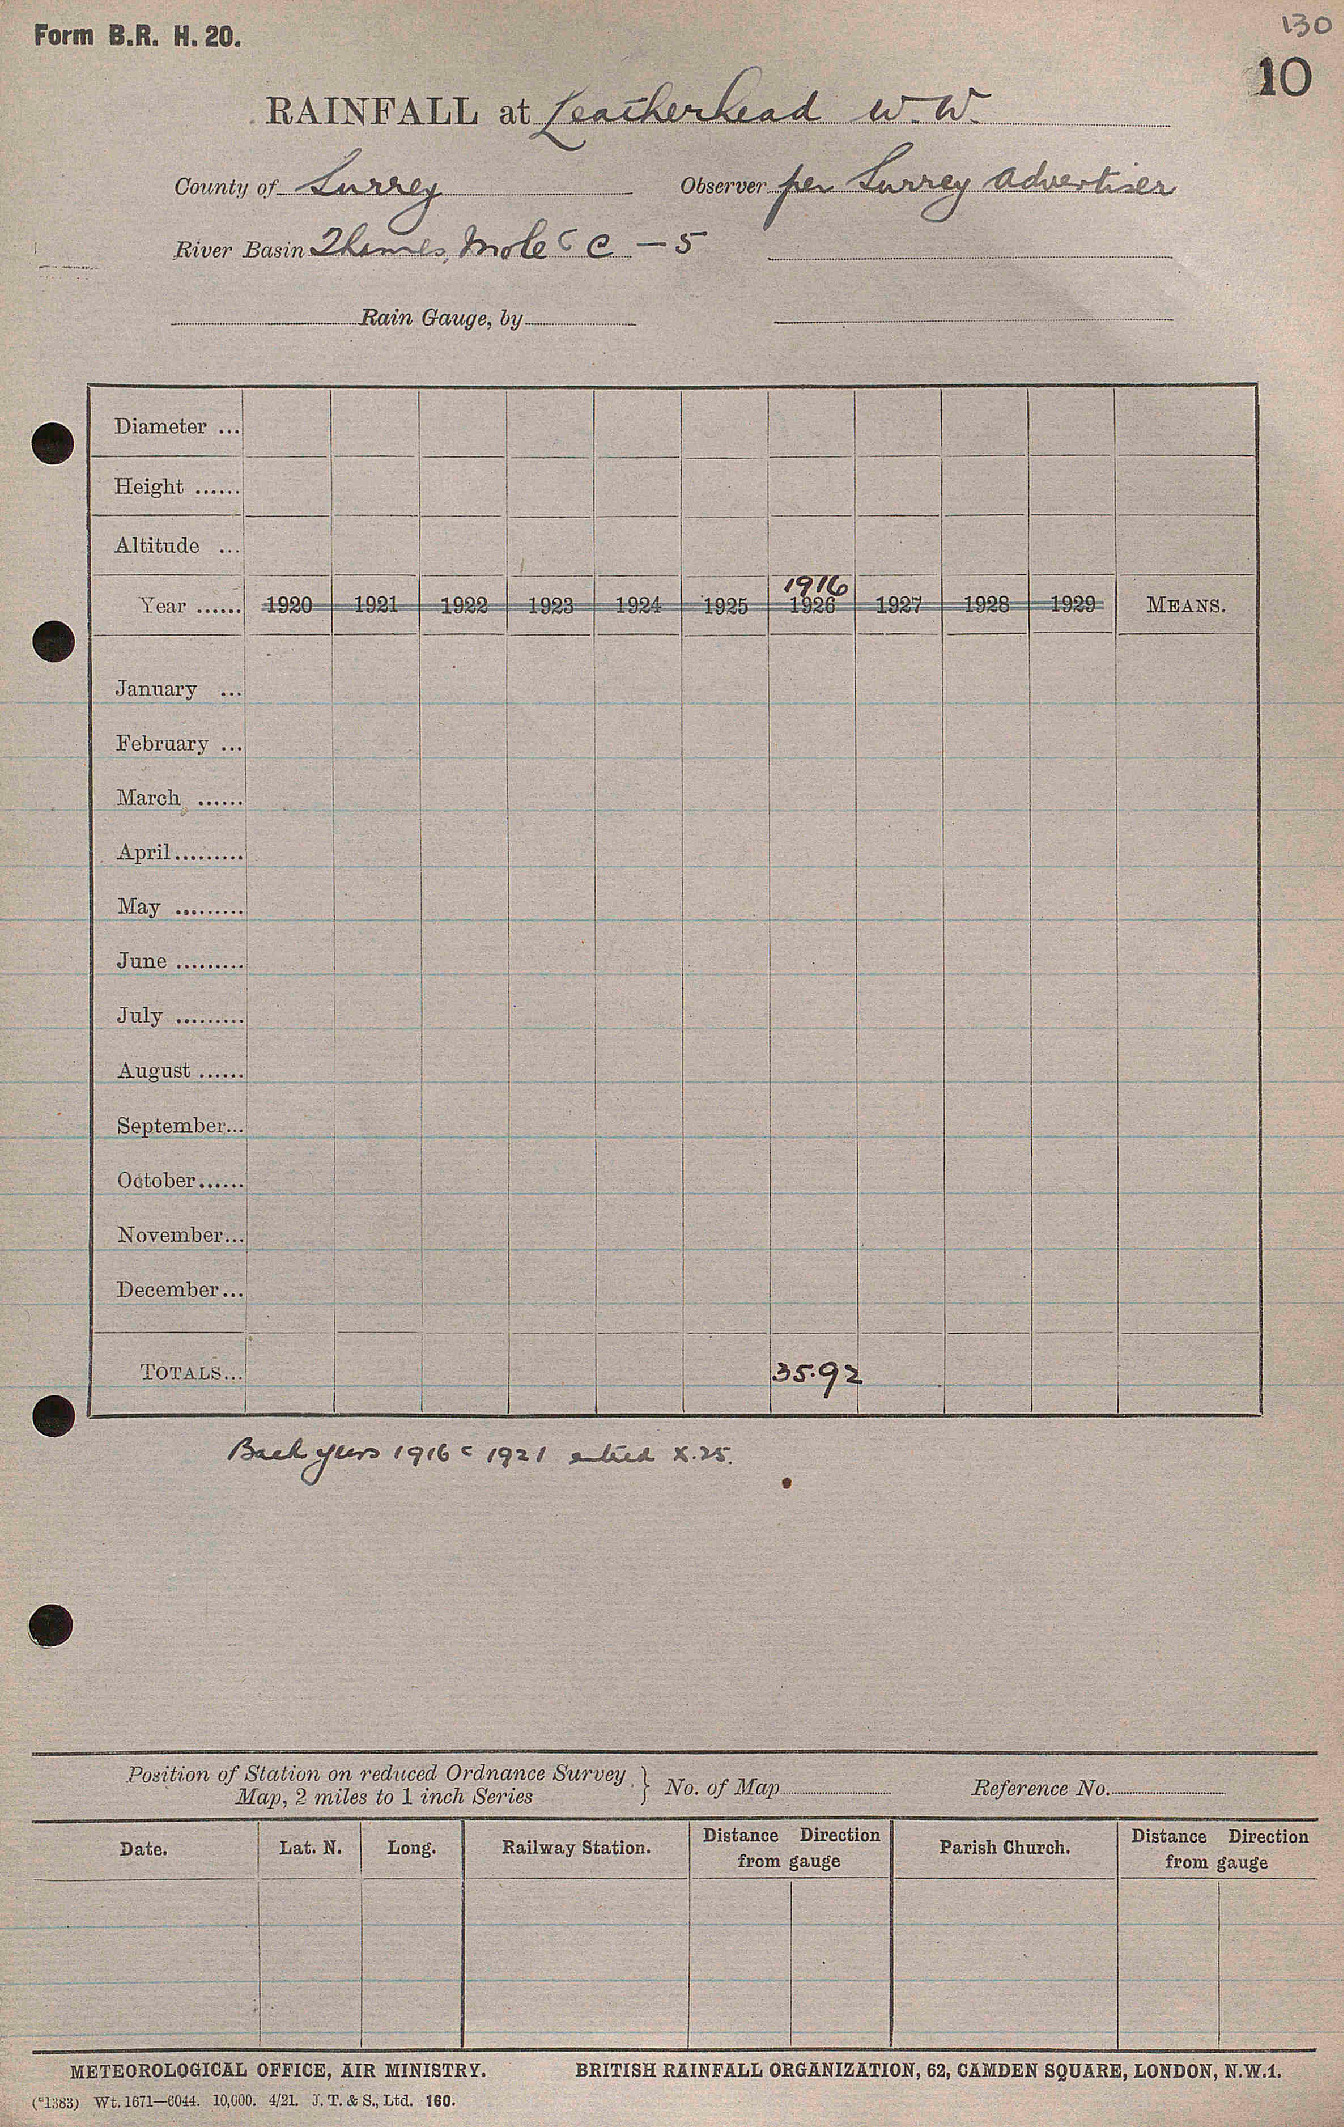 Form B.R. H. 20.
130
10
RAINFALL at Leatherhead W.W.
County of Surrey Observer per Surrey Advertiser
River Basin Thames, Mole & C – 5
Rain Gauge, by
Diameter ...
Height ......
Altitude ...
1916
Year ...... 1920 1921 1922 1923 1924 1925 1926 1927 1928 1929 MEANS.
January ...
February ...
March ......
April.........
May .........
June .........
July .........
August ......
September...
October......
November...
December...
TOTALS... 35.92
Back years 1916 & 1921 entered X.25.
Position of Station on reduced Ordnance Survey } No. of Map Reference No.
Map, 2 miles to 1 inch Series
Date. Lat. N. Long. Railway Station. Distance Direction Parish Church. Distance Direction
from gauge from gauge
METEOROLOGICAL OFFICE, AIR MINISTRY. BRITISH RAINFALL ORGANIZATION, 62, CAMDEN SQUARE, LONDON, N.W.1.
(*1383) Wt. 1671—6044. 10,000. 4/21. J. T. & S., Ltd. 160.